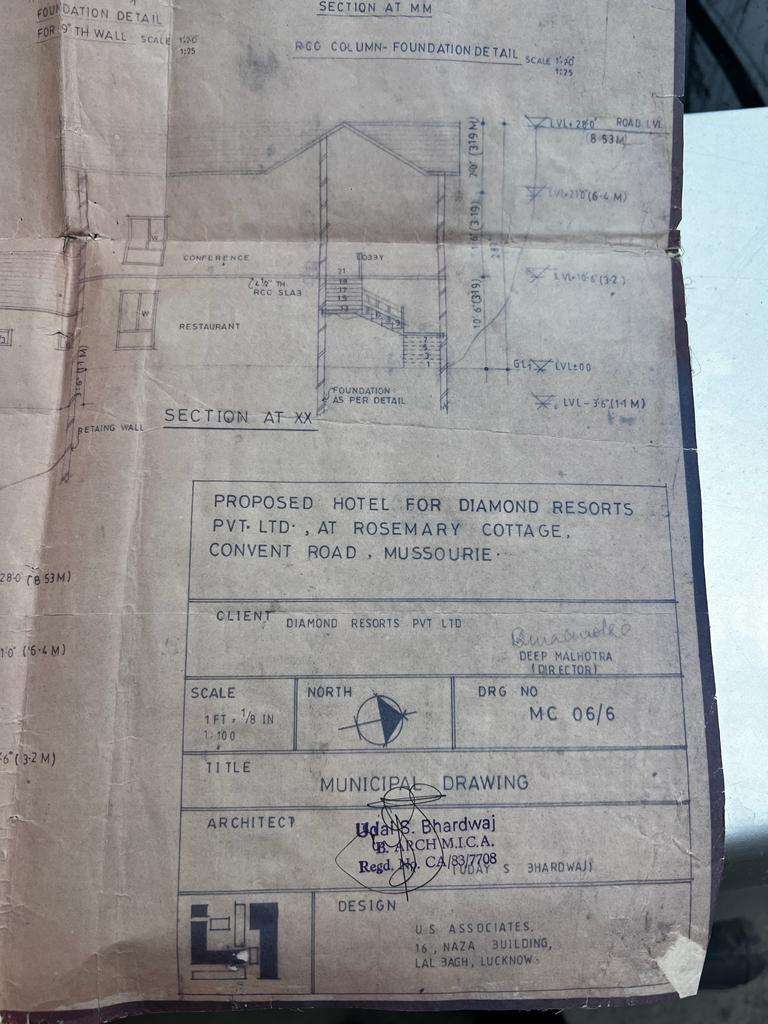 FOUNDATION DETAIL
FOR 9" TH WALL - SCALE 1"=20'
1:25
SECTION AT MM
RCC COLUMN- FOUNDATION DETAIL SCALE 1"=20'
1:25
LVL+28'0" ROAD LVL
(8.53M)
7'0" (3.19 M)
LVL+21'0"(6.4 M)
10'6"(3.19)
28'
CONFERENCE
LOBBY
4½" TH
RCC SLAB
LVL+10'6"(3.2)
W
W
RESTAURANT
21
10'6"(3.19)
GL± LVL±00
3'6"(1.1 M)
FOUNDATION
AS PER DETAIL
LVL-3'6"(1.1 M)
SECTION AT XX
RETAING WALL
28'0" (8.53M)
1'0" (6.4 M)
6" (3.2 M)
PROPOSED HOTEL FOR DIAMOND RESORTS
PVT. LTD., AT ROSEMARY COTTAGE,
CONVENT ROAD, MUSSOURIE.
CLIENT DIAMOND RESORTS PVT LTD
DEEP MALHOTRA
(DIRECTOR)
SCALE
1FT = 1/8 IN
1:100
NORTH
DRG NO
MC 06/6
TITLE
MUNICIPAL DRAWING
ARCHITECT
Udai S. Bhardwaj
B. ARCH M.I.C.A.
Regd. No. CA/83/7708
(UDAY S BHARDWAJ)
DESIGN
U S ASSOCIATES,
16, NAZA BUILDING,
LAL BAGH, LUCKNOW.